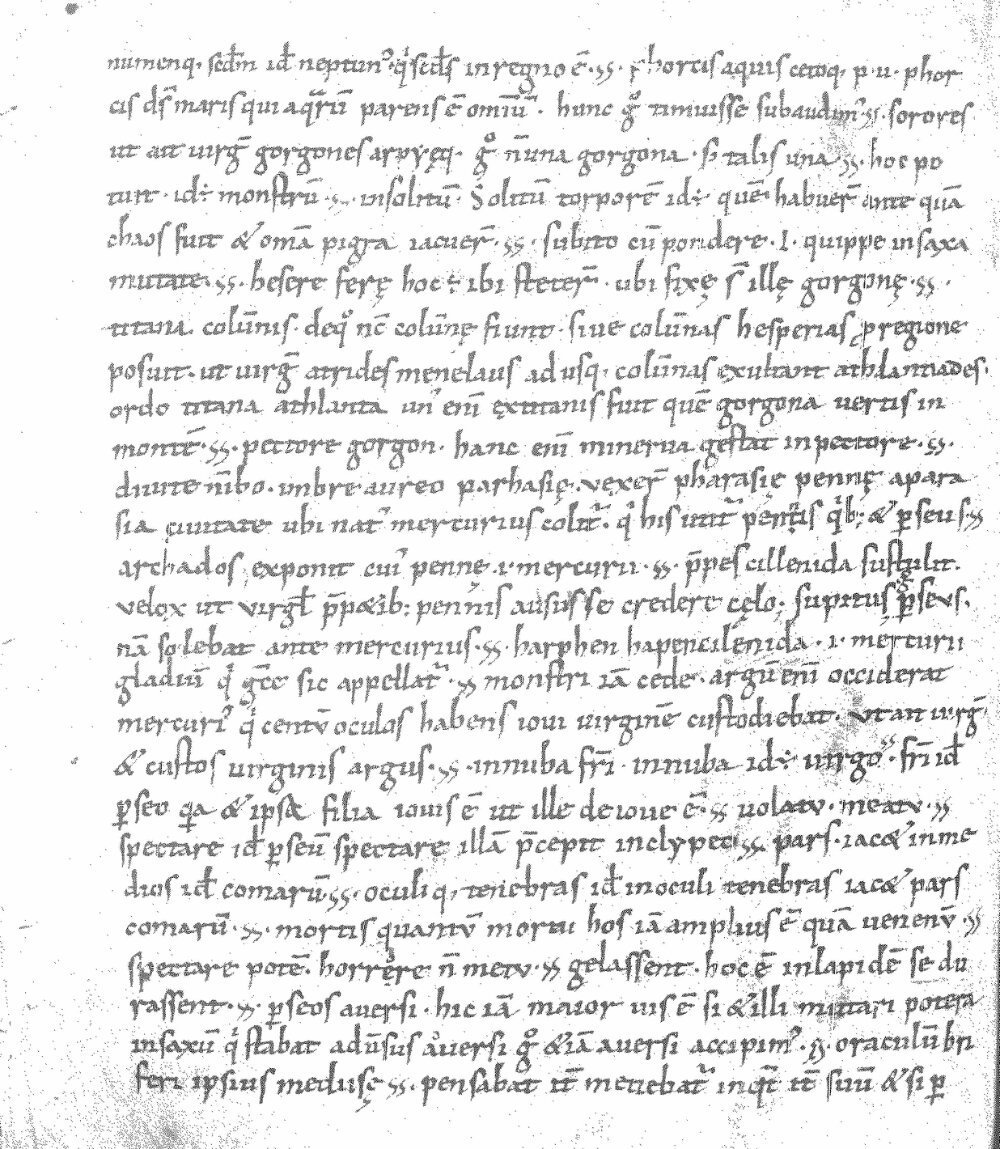 numenq· scđm iđ neptun᾽ qͥ scđs in regno ē · phorcis aquis cetoq· p·u· phor
cis dś maris qui aq̄rū parens ē omiū · hunc gͦ timuisse subaudim᾽ · sorores
ut ait uirḡ gorgones arpyęq· gͦ n̄ una gorgona · s; talis una · hoc po
tuit · id÷ monstrū · insolitū · Solitū torporē id÷ quē habuer̄ ante quā
chaos fuit & omā pigra iacuer̄ · subito cū pondere · I · quippe in saxa
mutate · hesere ferę hoc ÷ ibi steter̄ · ubi fixę s̄ illę gorgonę ·
titana columnis · deqͦ nc̄ colūnę fiunt · siue colūnas hesperias p regione
posuit · ut uirḡ atrides menelaus ad usq· colūnas exultant athlantiades·
ordo titana athlanta un᾽ enī ęxtitanis fuit quē gorgona uertis in
montē · pectore gorgon · hanc enī minerua gestat in pectore ·
diuite nībo · imbre aureo parhasię · vexer̄ pharasię pennę apara
sia ciuitate ubi nat᾽ mercurius colit᷑ · qͥ his utit᷑ pennis qͥb; & ꝑseus ·
archados exponit cui᾽ pennę · i · mercurii · p̄pes cillenida sustulit ·
velox ut virgł p̄p&ib; pennis ausus se credere cęlo; supitus ꝑseus ·
nā solebat ante mercurius · harphen hapencilenida · i · mercurii
gladiū qͥ ḡce sic appellat᷑ · monstri iā cede · argū enī occiderat
mercuri᾽ qͥ centū oculos habens ioui uirginē custodiebat · vt ait uirḡ
& custos uirginis argus · innuba frī · innuba id÷ uirgo · frī iđ
ꝑseo q̄a & ipsa filia iouis ē ut ille de ioue ē · uolatv · meatv ·
spectare iđ ꝑseū spectare illā p̄cepit in clypeo · pars · iac& in me
dios iđ comarū · oculiq· tenebras iđ in oculi tenebras iac& pars
comarū · mortis quantū mortui hos iā amplius ē quā uenenū ·
spectare potē · horrere n̄ metv · gelassent · hoc ē in lapidē se du
rassent · ꝑseos auersi · hic iā maior uis ē si & illi mutari potera
in saxū qͥ stabat adūsus auersi gͦ &iā auersi accipim᾽ · oraculū bri
feri ipsius medusę · pensabat it̄ metiebat᷑ inq̄t it̄ suū & si ꝑ